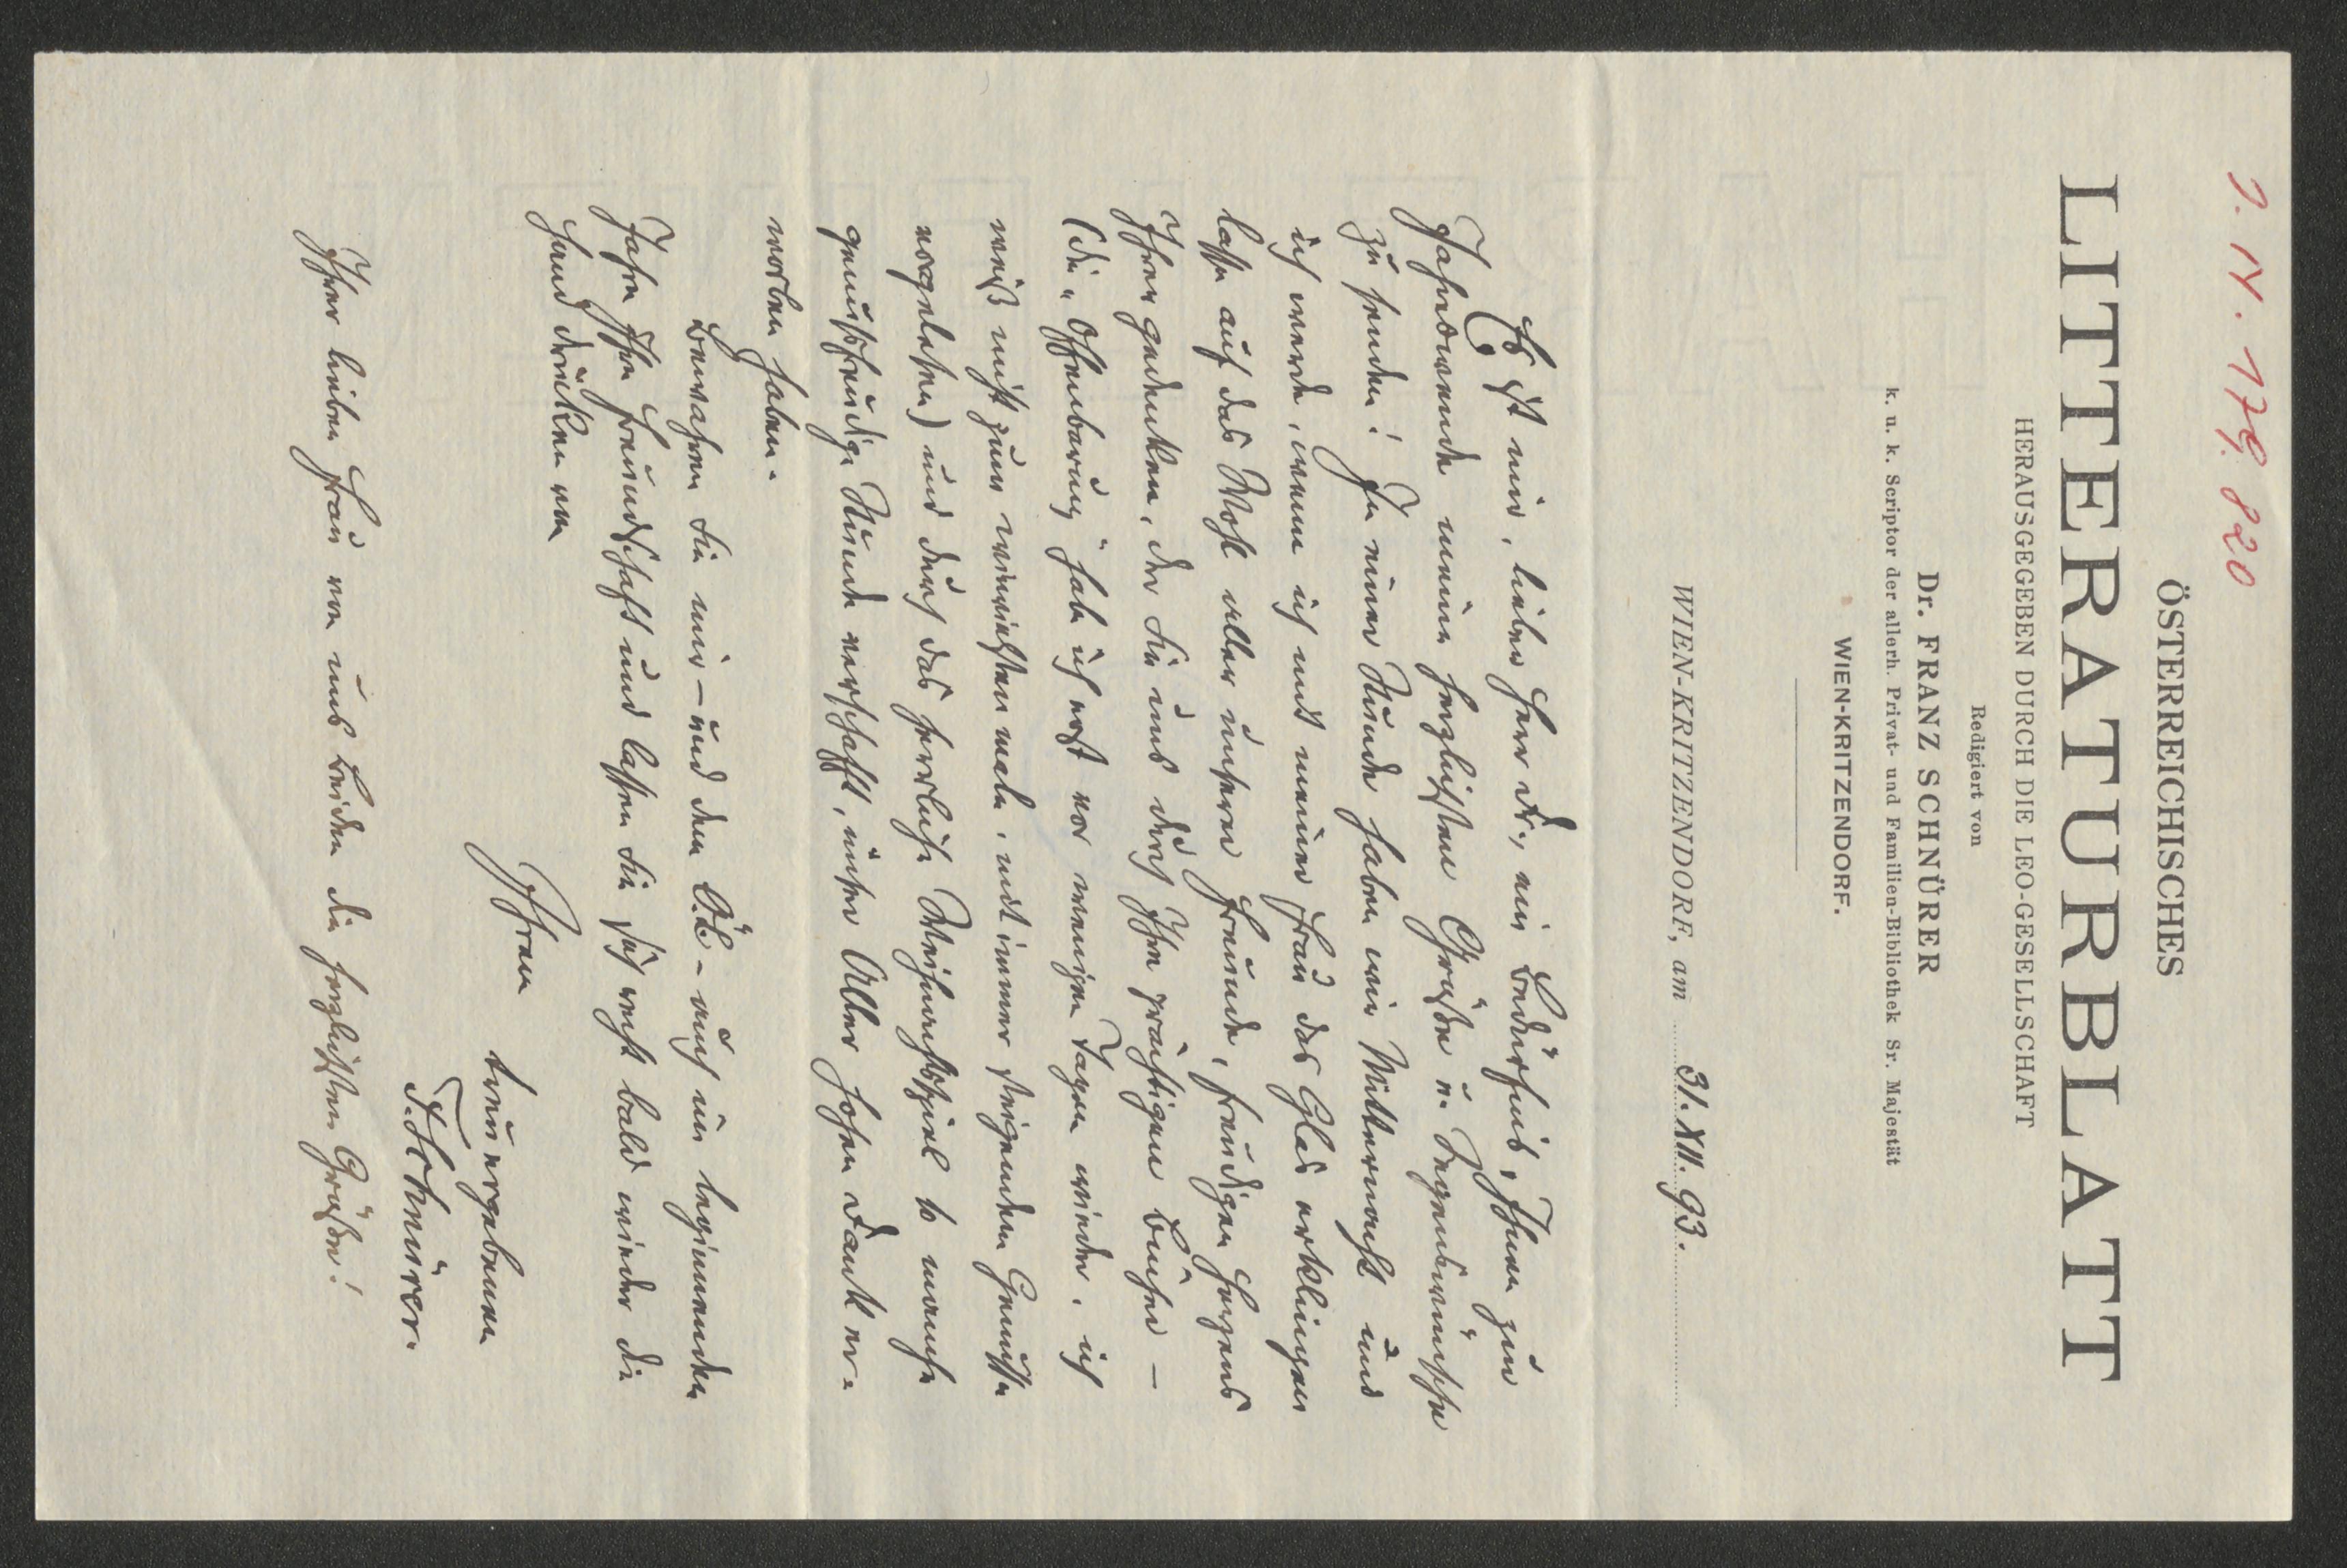 J. N. 179.820
ÖSTERREICHISCHES
LITTERATURBLATT
HERAUSGEGEBEN DURCH DIE LEO-GESELLSCHAFT
Redigiert von
Dr. FRANZ SCHNÜRER
k. u. k. Scriptor der allerh. Privat- und Familien-Bibliothek Sr. Majestät
WIEN-KRITZENDORF.
WIEN-KRITZENDORF, am 31. XII. 93.
Es ist mir, lieber Herr Dr., ein Bedürfnis, Ihnen zur
Jahreswende meine herzlichsten Grüße u. Segenswünsche
zu senden! In einer Stunde haben wir Mitternacht und
ich werde, wenn ich mit meiner Frau das Glas erklingen
lasse auf das Wohl aller unserer Freunde, freudigen Herzens
Ihrer gedenken, der Sie uns durch Ihre prächtigen Bücher –
(die „Offenbarung" habe ich erst vor wenigen Tagen wieder, ich
weiß nicht zum wievielten male, mit immer steigendem Genusse
vorgelesen) und durch das herrliche Weihnachtsspiel so manche
genußfreudige Stunde verschafft, unser Aller hohen Dank er-
worben haben.
Bewahren Sie mir – und dem Ö. L. – auch im beginnenden
Jahre Ihre Freundschaft und lassen Sie sich recht bald wieder die
Hand drücken von
Ihrem
treuergebenen
F. Schnürer.
Ihrer lieben Frau von uns beiden die herzlichsten Grüße!